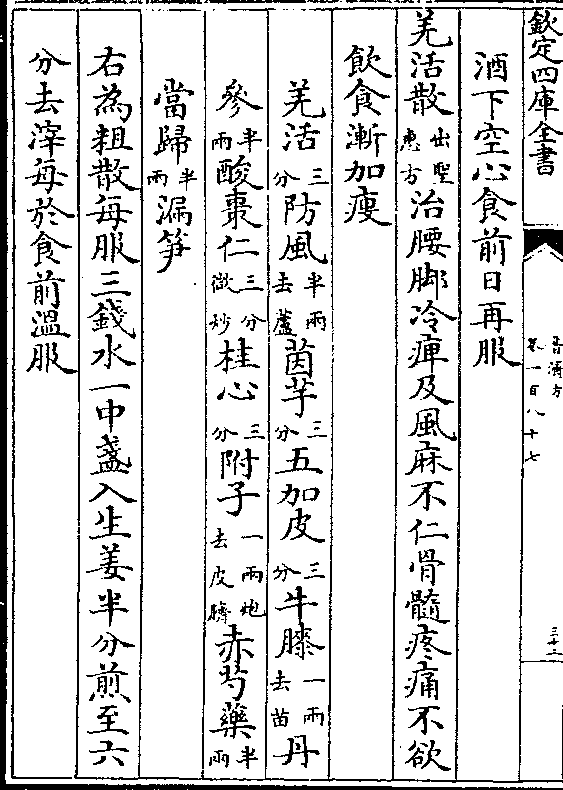 欽定四庫全書
普濟方
卷一百八十七
三十二
酒下空心食前日再服
羌活散出聖惠方治腰脚冷痺及風麻不仁骨髓疼痛不欲
飲食漸加瘦
羌活三分防風半兩去蘆茵芋三分五加皮三分牛膝一兩去苗丹
參半兩酸棗仁三分微炒桂心三分附子一兩炮去皮臍赤芍藥半兩
當歸半兩漏笋
右為粗散每服三錢水一中盞入生姜半分煎至六
分去滓每於食前溫服